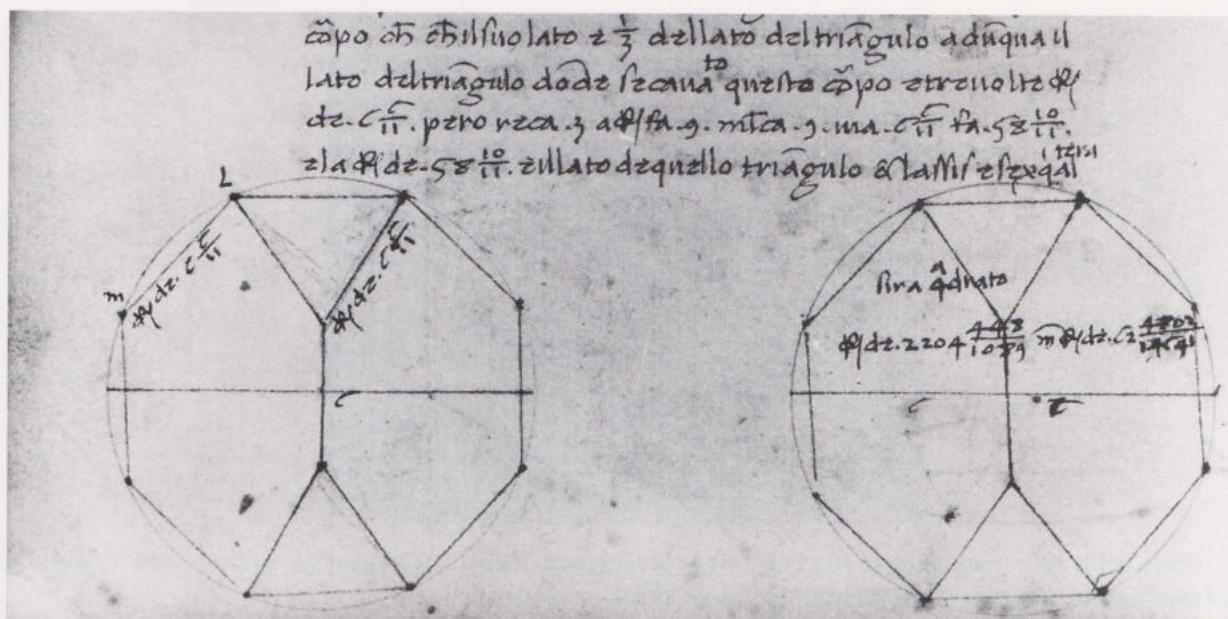 cõpo ch̄ ch̄ il suo lato e 1/3 del lato del triãgulo adũqua il
lato del triãgulo dõde se caua to questo cõpo e tre uolte
de. 6 6/11. pero reca. 3 a fa. 9. m̃ca. 9. uia. 6 6/11 fa. 58 10/11.
e la de. 58 10/11. e il lato de quello triãgulo
L
m
de. 6 6/11
de. 6 6/11
c
sira a q̃drato
de. 2204 448/1089 m̃ de. 62
c